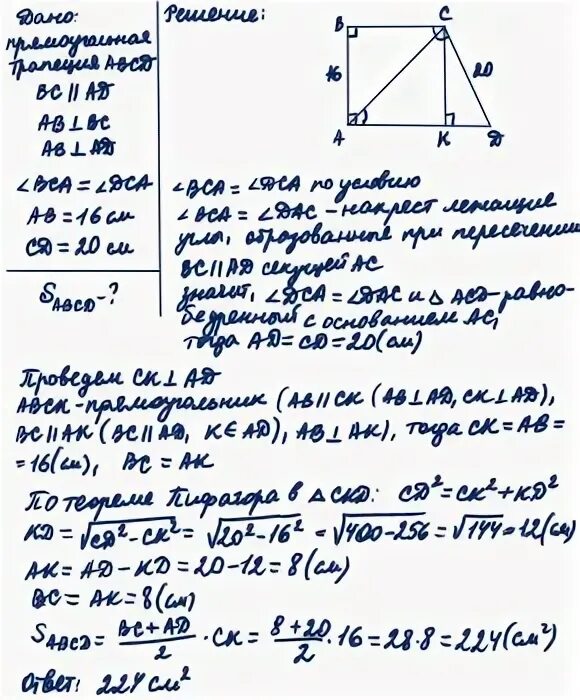 Дано:
прямоугольная
трапеция ABCD
BC || AD
AB ⊥ BC
AB ⊥ AD
∠BCA = ∠DCA
AB = 16 см
CD = 20 см
S_ABCD - ?
Решение:
B
C
16
20
A
K
D
∠BCA = ∠DCA по условию
∠BCA = ∠DAC - накрест лежащие
углы, образованные при пересечении
BC || AD секущей AC
значит, ∠DCA = ∠DAC и △ ACD - равно-
бедренный с основанием AC,
тогда AD = CD = 20 (см)
Проведем CK ⊥ AD
ABCK - прямоугольник (AB || CK (AB ⊥ AD, CK ⊥ AD),
BC || AK (BC || AD, K ∈ AD), AB ⊥ AK), тогда CK = AB =
= 16 (см), BC = AK
По теореме Пифагора в △ CKD: CD² = CK² + KD²
KD = √(CD² - CK²) = √(20² - 16²) = √(400 - 256) = √144 = 12 (см)
AK = AD - KD = 20 - 12 = 8 (см)
BC = AK = 8 (см)
S_ABCD = (BC + AD)/2 · CK = (8 + 20)/2 · 16 = 28 · 8 = 224 (см²)
Ответ: 224 см²